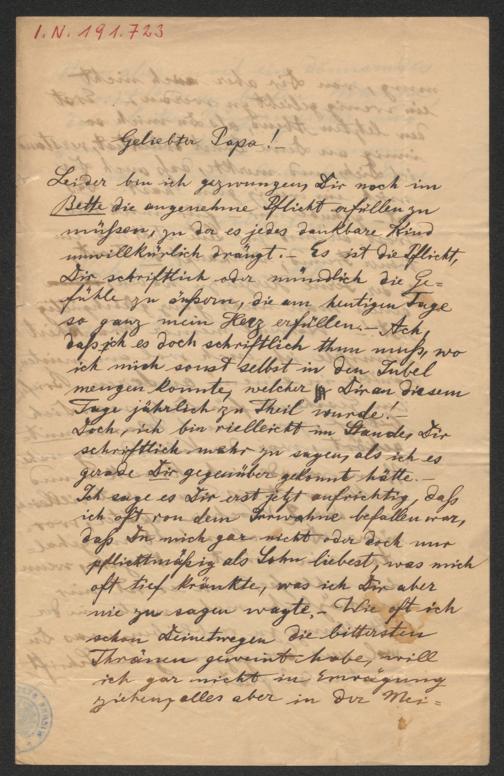 I. N. 191.723
Geliebter Papa! –
Leider bin ich gezwungen, Dir noch im
Bette die angenehme Pflicht erfüllen zu
müssen, zu der es jedes dankbare Kind
unwillkürlich drängt. – Es ist die Pflicht,
Dir schriftlich oder mündlich die Ge=
fühle zu äußern, die am heutigen Tage
so ganz mein Herz erfüllen. – Ach,
daß ich es doch schriftlich thun muß, wo
ich mich sonst selbst in den Jubel
mengen konnte, welcher Dir an diesem
Tage jährlich zu Theil wurde! –
Doch, ich bin vielleicht im Stande, Dir
schriftlich mehr zu sagen, als ich es
gerade Dir gegenüber gekonnt hätte. –
Ich sage es Dir erst jetzt aufrichtig, daß
ich oft von dem Irrwahne befallen war,
daß Du mich gar nicht oder doch nur
pflichtmäßig als Sohn liebest, was mich
oft tief kränkte, was ich Dir aber
nie zu sagen wagte. – Wie oft ich
schon Deinetwegen die bittersten
Thränen geweint habe, will
ich gar nicht in Erwägung
ziehen, alles aber in der Mei=